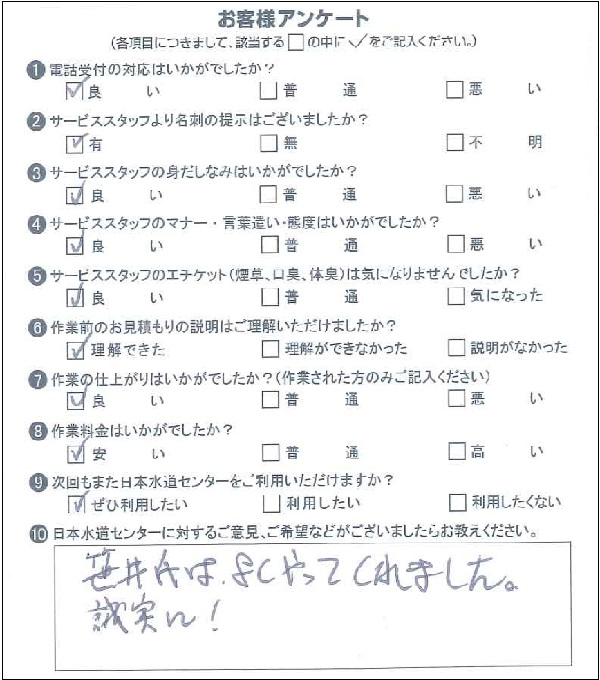 お客様アンケート
(各項目につきまして、該当する□の中に✓をご記入ください。)
❶ 電話受付の対応はいかがでしたか?
☑良い □普通 □悪い
❷ サービススタッフより名刺の提示はございましたか?
☑有 □無 □不明
❸ サービススタッフの身だしなみはいかがでしたか?
☑良い □普通 □悪い
❹ サービススタッフのマナー・言葉遣い・態度はいかがでしたか?
☑良い □普通 □悪い
❺ サービススタッフのエチケット(煙草、口臭、体臭)は気になりませんでしたか?
☑良い □普通 □気になった
❻ 作業前のお見積もりの説明はご理解いただけましたか?
☑理解できた □理解ができなかった □説明がなかった
❼ 作業の仕上がりはいかがでしたか?(作業された方のみご記入ください)
☑良い □普通 □悪い
❽ 作業料金はいかがでしたか?
☑安い □普通 □高い
❾ 次回もまた日本水道センターをご利用いただけますか?
☑ぜひ利用したい □利用したい □利用したくない
❿ 日本水道センターに対するご意見、ご希望などがございましたらお教えください。
笹井氏は、よくやってくれました。
誠実に!